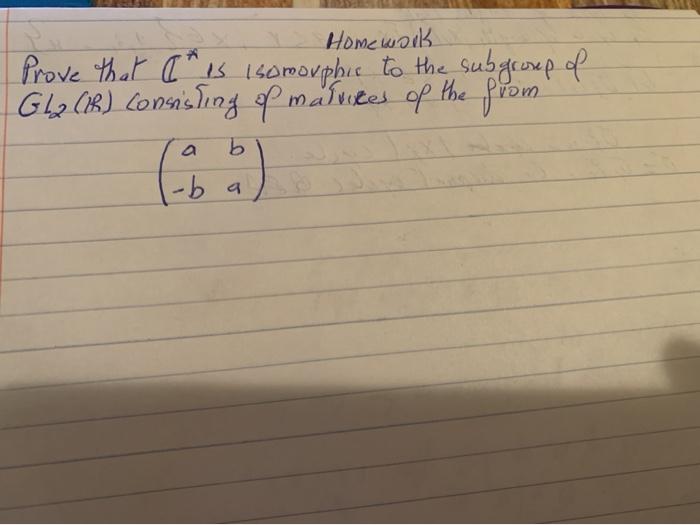 Homework
Prove that ℂ* is isomorphic to the subgroup of
GL₂(ℝ) Consisting of matrices of the from
( a b
-b a )